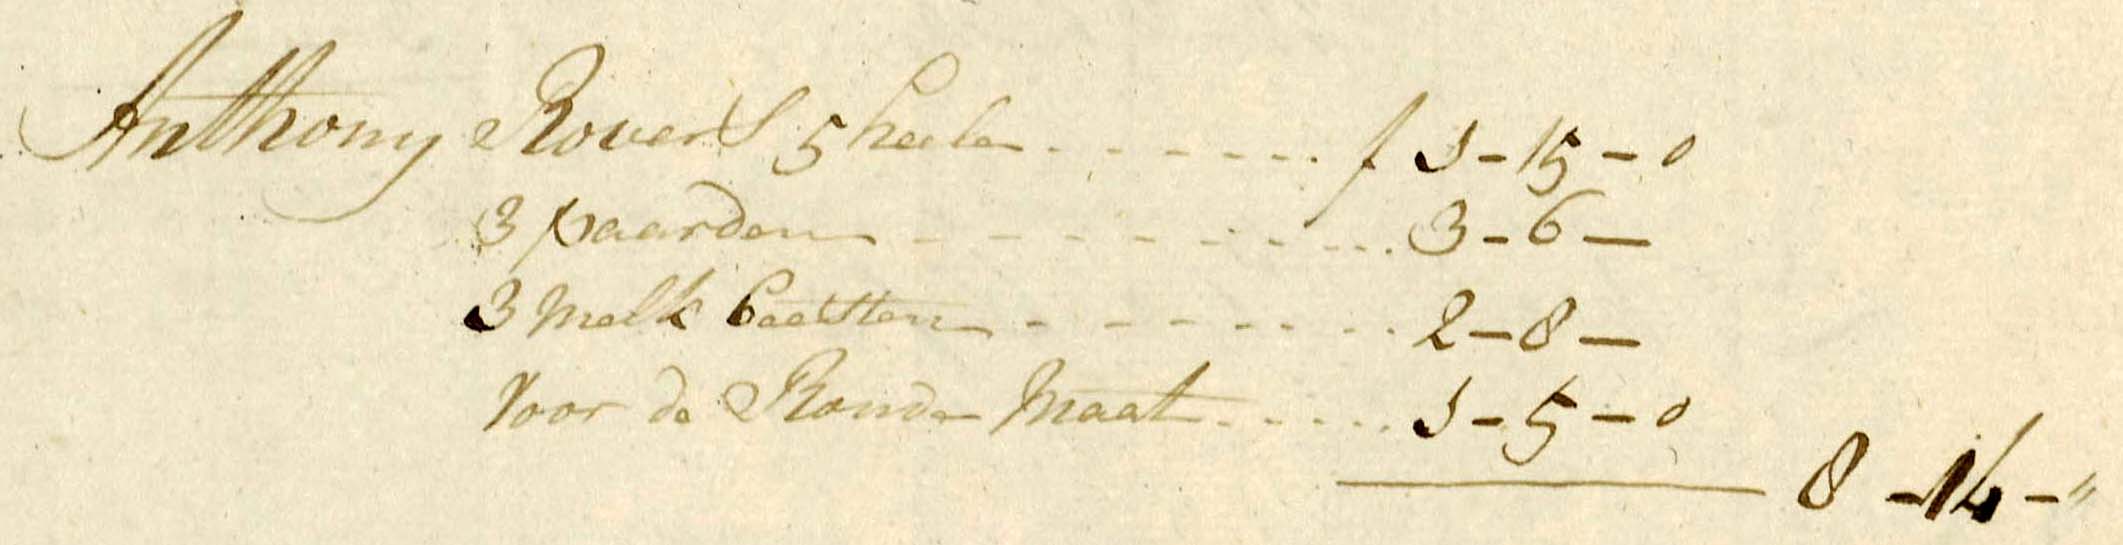 Anthony Rovers 5 heele ------- f 1-15-0
3 paarden --------- 3-6-
3 melk beesten ------- 2-8-
Voor de Ronde Maat ----- 1-5-0
8-14-"